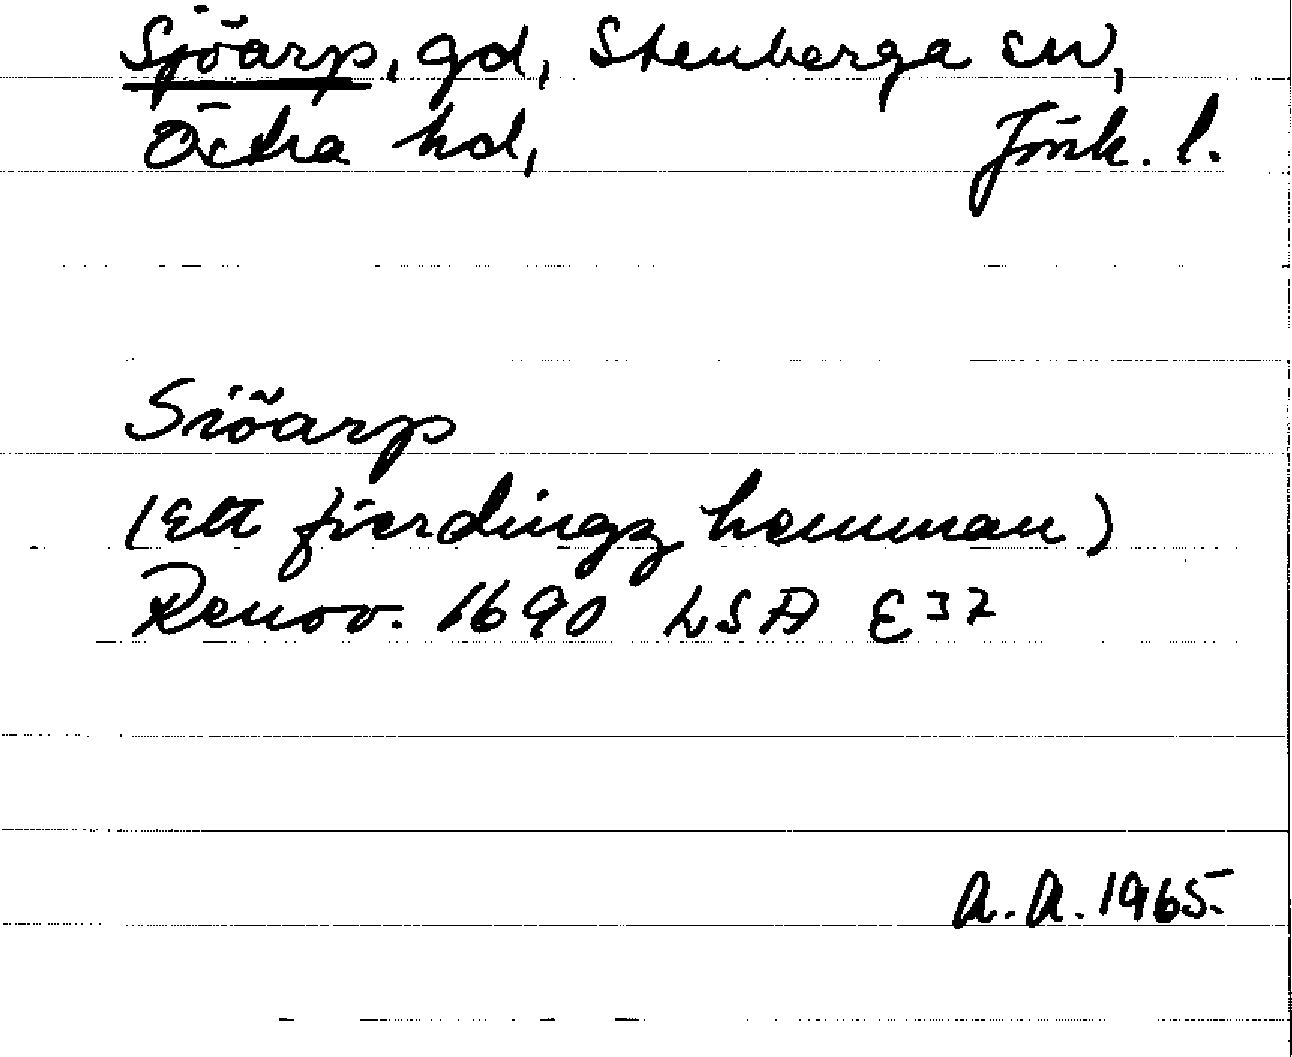 Sjöarp, gd, Stenberga sn,
Östra hd, Jönk. l.
Siöarp
(Ett fierdingz hemman)
Renov. 1690 LSA E37
A.A. 1965.